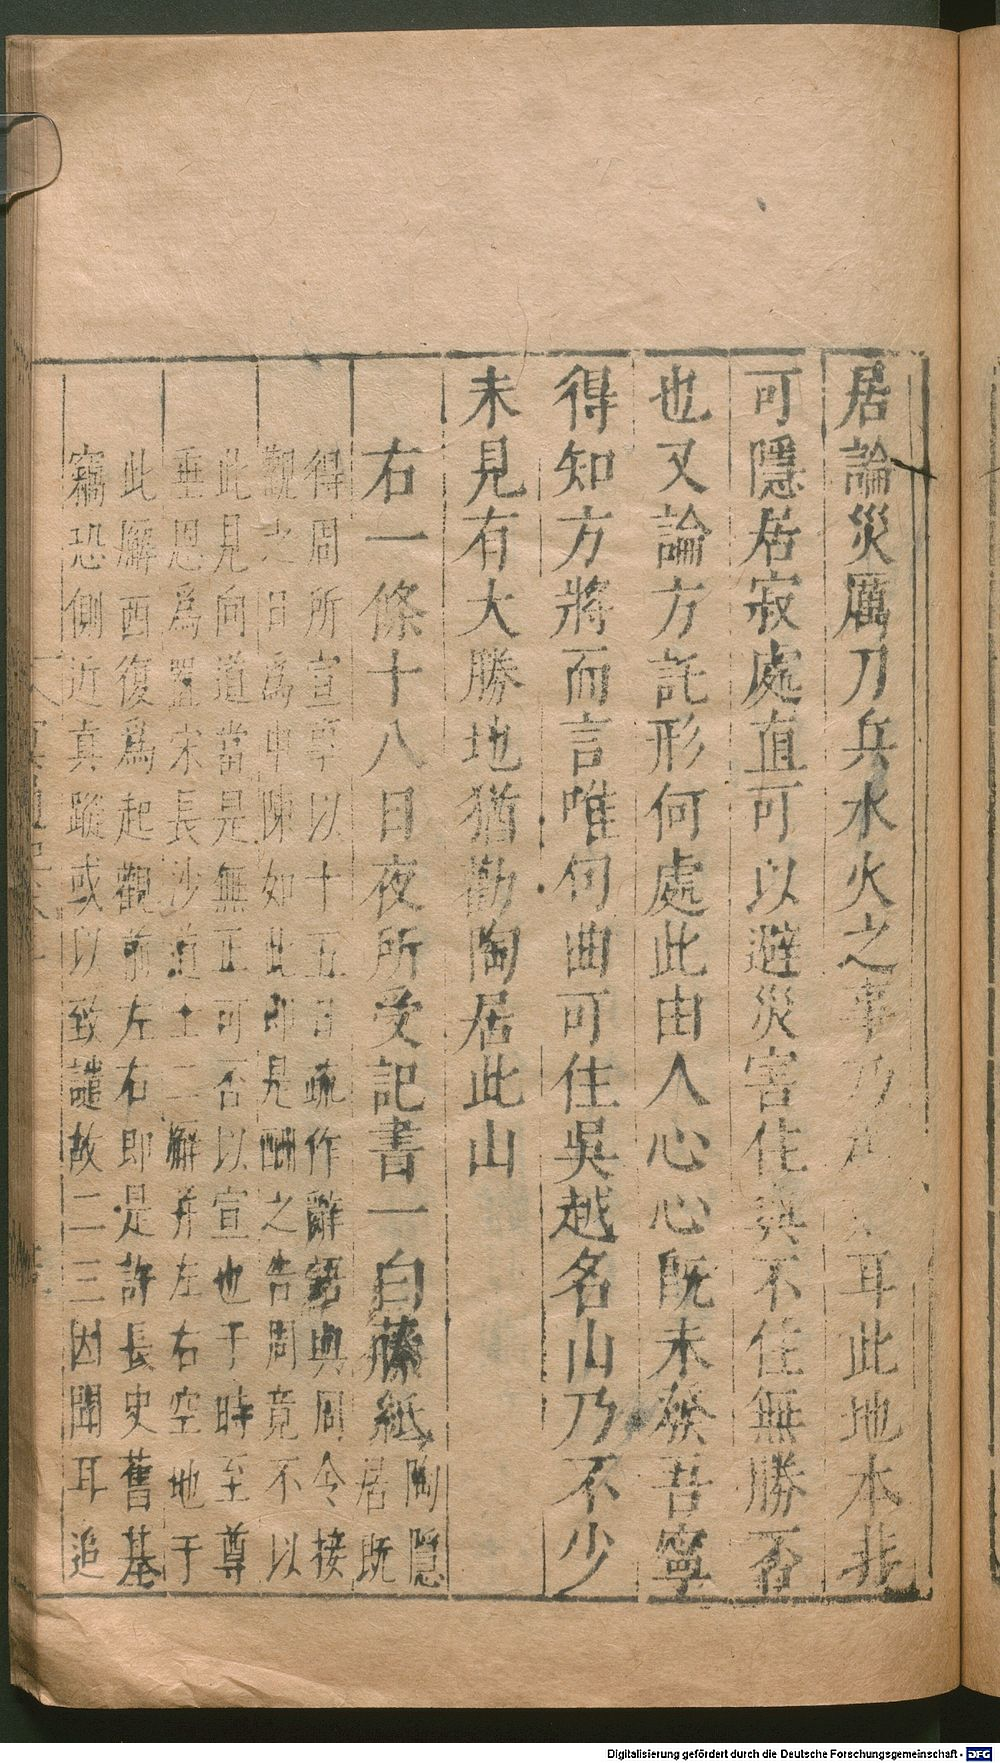 居論災厲刀兵水火之事乃 耳此地本非
可隱居寂處直可以避災害住與不住無勝否
也又論方託形何處此由人心心既未發吾寧
得知方將而言唯句曲可住吳越名山乃不少
未見有大勝地猶勸陶居此山
右一條十八日夜所受記書一白藤紙陶隱
居既
得周所宣辜以十五日疏作辭語與周令接
觀之日為申陳如此即是酬之告周竟不以
此見向道當是無正可否以宣也于時至尊
垂恩為置宋長沙道士二廨并左右空地于
此廨西復爲起觀前左右即是許長史舊基
竊恐側近真蹤或以致譴故二三因聞耳追
Digitalisierung gefördert durch die Deutsche Forschungsgemeinschaft - DFG